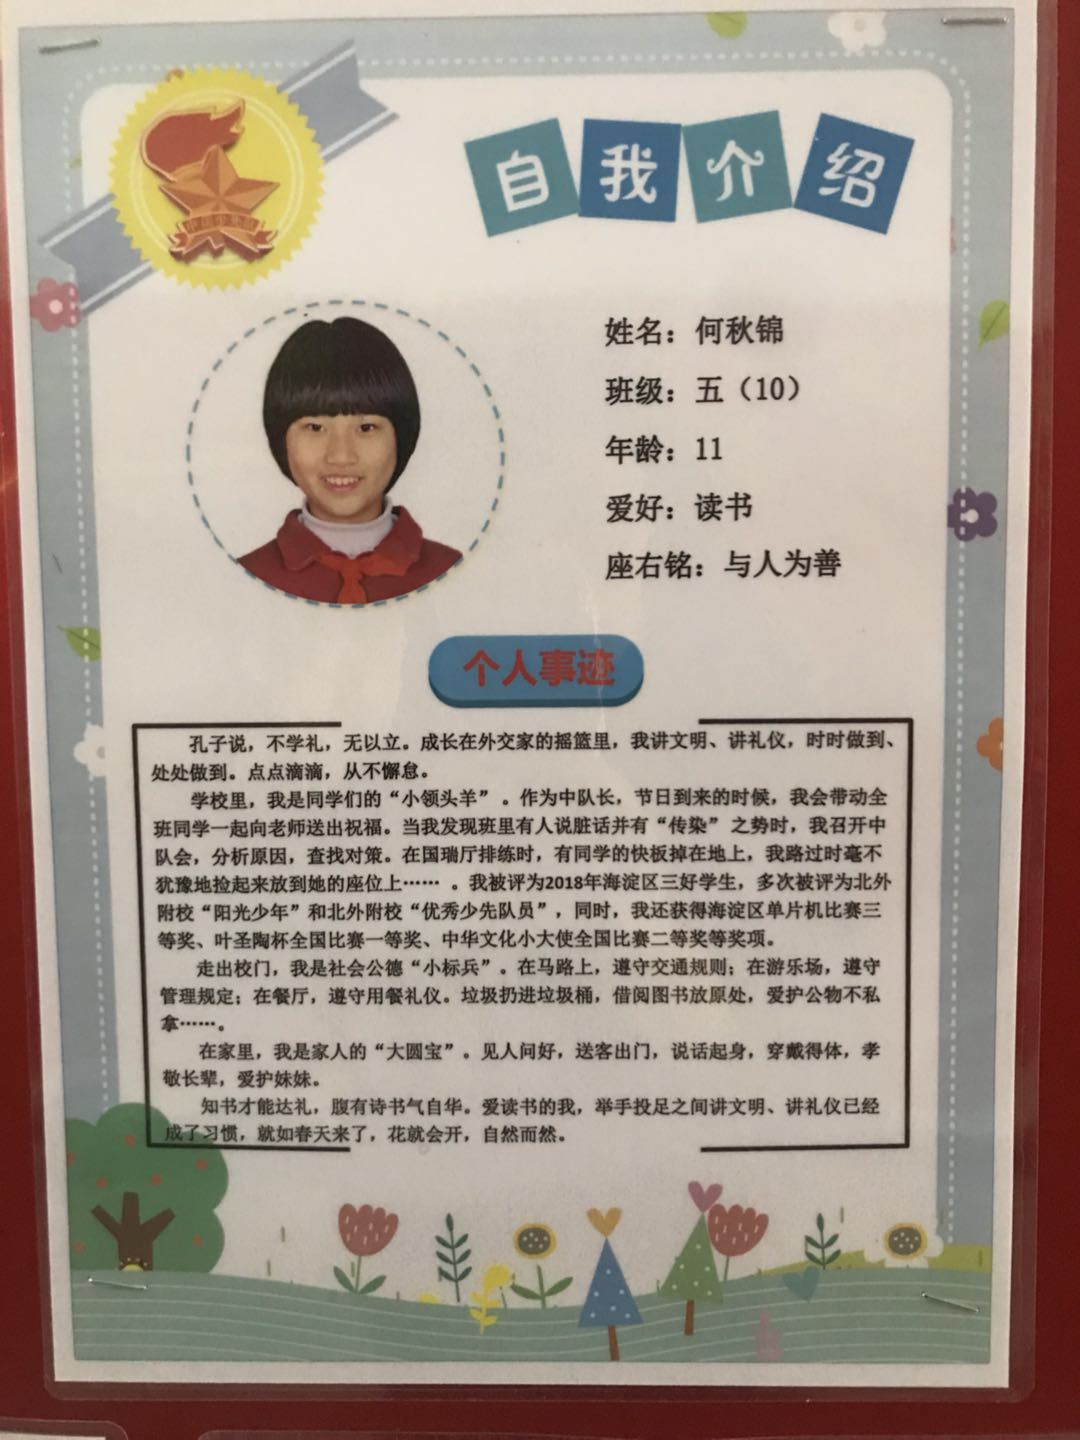 自我介绍
姓名：何秋锦
班级：五（10）
年龄：11
爱好：读书
座右铭：与人为善
个人事迹
孔子说，不学礼，无以立。成长在外交家的摇篮里，我讲文明、讲礼仪，时时做到、
处处做到。点点滴滴，从不懈怠。
学校里，我是同学们的“小领头羊” 。作为中队长，节日到来的时候，我会带动全
班同学一起向老师送出祝福。当我发现班里有人说脏话并有“传染” 之势时，我召开中
队会，分析原因，查找对策。在国瑞厅排练时，有同学的快板掉在地上，我路过时毫不
犹豫地捡起来放到她的座位上…… 。我被评为2018年海淀区三好学生，多次被评为北外
附校“阳光少年”和北外附校“优秀少先队员”，同时，我还获得海淀区单片机比赛三
等奖、叶圣陶杯全国比赛一等奖、中华文化小大使全国比赛二等奖等奖项。
走出校门，我是社会公德“小标兵”。在马路上，遵守交通规则；在游乐场，遵守
管理规定；在餐厅，遵守用餐礼仪。垃圾扔进垃圾桶，借阅图书放原处，爱护公物不私
拿……。
在家里，我是家人的“大圆宝”。见人问好，送客出门，说话起身，穿戴得体，孝
敬长辈，爱护妹妹。
知书才能达礼，腹有诗书气自华。爱读书的我，举手投足之间讲文明、讲礼仪已经
成了习惯，就如春天来了，花就会开，自然而然。